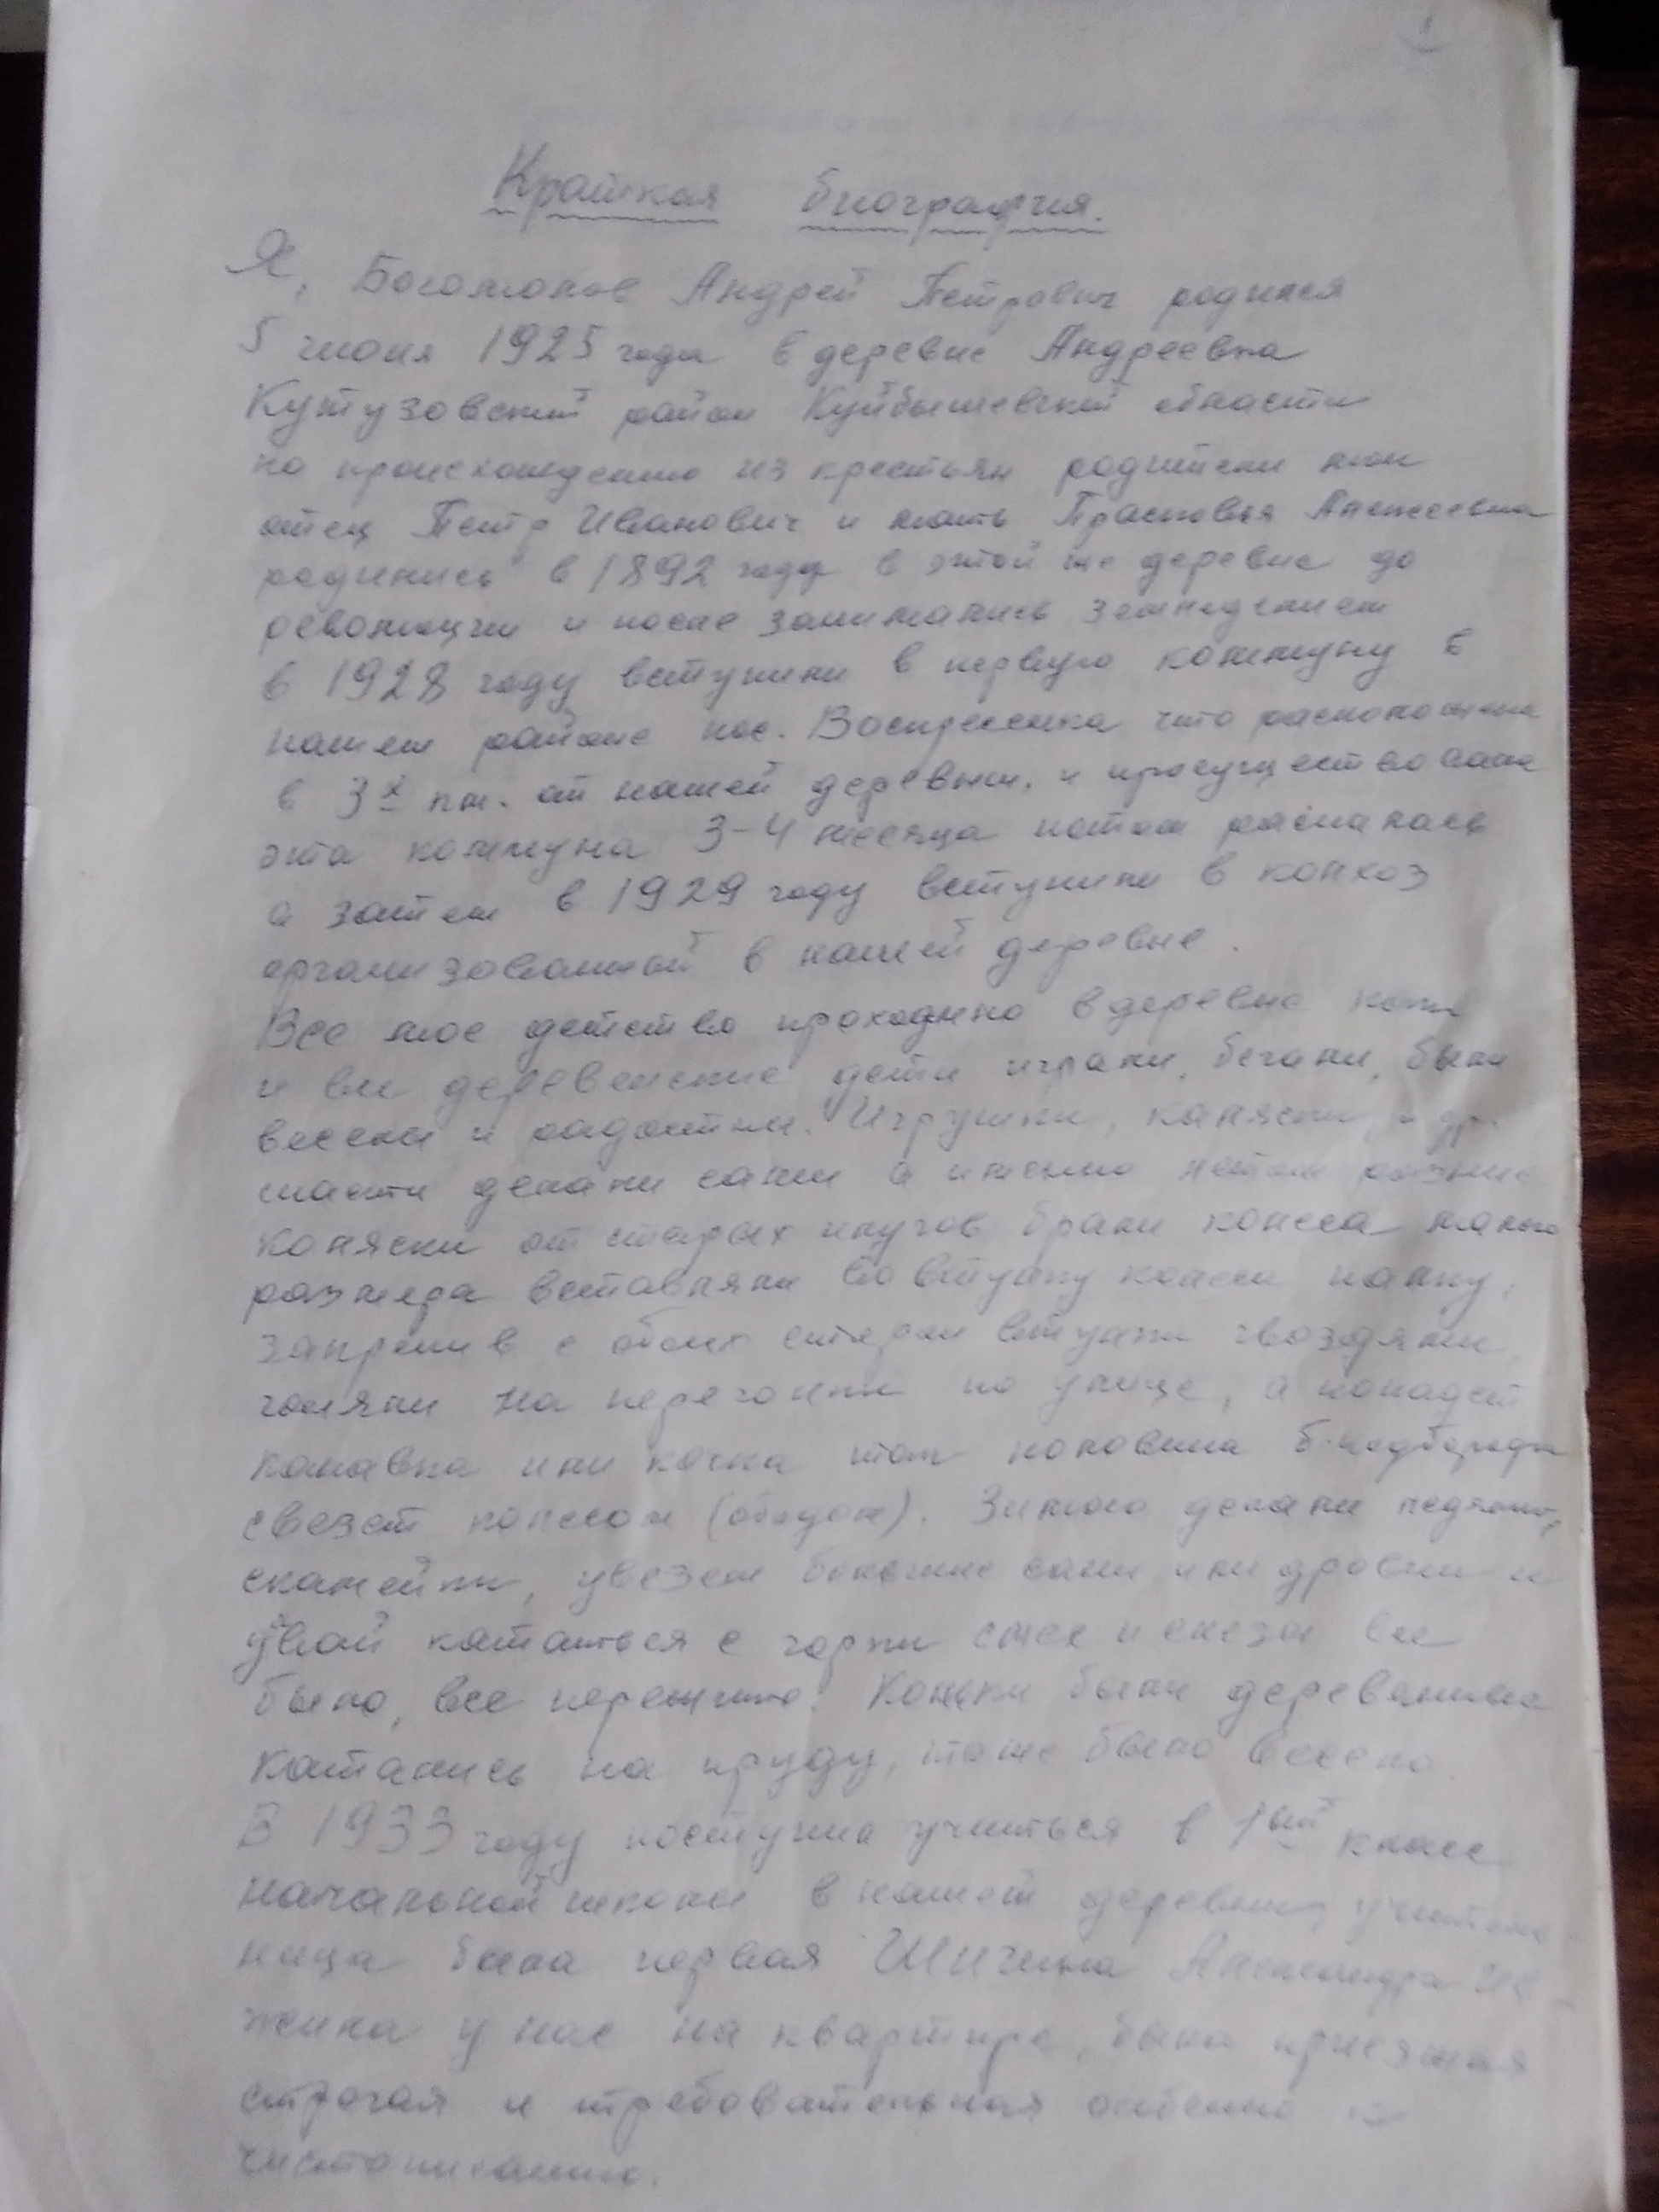 1
Краткая биография.
Я, Богомолов Андрей Петрович родился
5 июня 1925 года в деревне Андреевка
Кутузовский район Куйбышевской области
по происхождению из крестьян родители мои
отец Петр Иванович и мать Прасковья Алексеевна
родились в 1892 году в этой же деревне до
революции и после занимались земледелием
в 1928 году вступили в первую коммуну в
нашем районе пос. Воскресенка что расположена
в 3х км. от нашей деревни, и просуществовала
эта коммуна 3-4 месяца потом распалась
а затем в 1929 году вступили в колхоз
организованный в нашей деревне.
Все мое детство проходило в деревне как
и все деревенские дети играли, бегали, были
веселы и радостны. Игрушки, коляски и др.
снасти делали сами а именно разные
коляски от старых плугов брали колеса малого
размера вставляли во втулку колеса палку,
закрепив с обоих сторон втулки гвоздями,
гоняли на перегонки по улице, а попадет
канавка или кочка половина подбородка
свезет колесом (ободом). Зимою делали
скамейки, увезем большие сани или дровни и
давай кататься с горки смех и слезы все
было, все пережито. Коньки были деревянные
катались на пруду, тоже было весело.
В 1933 году поступил учиться в 1ый класс
начальной школы в нашей деревни, учитель-
ница была первая Шигина Александра
жила у нас на квартире, была
строгая и требовательная особенно к
чистописанию.